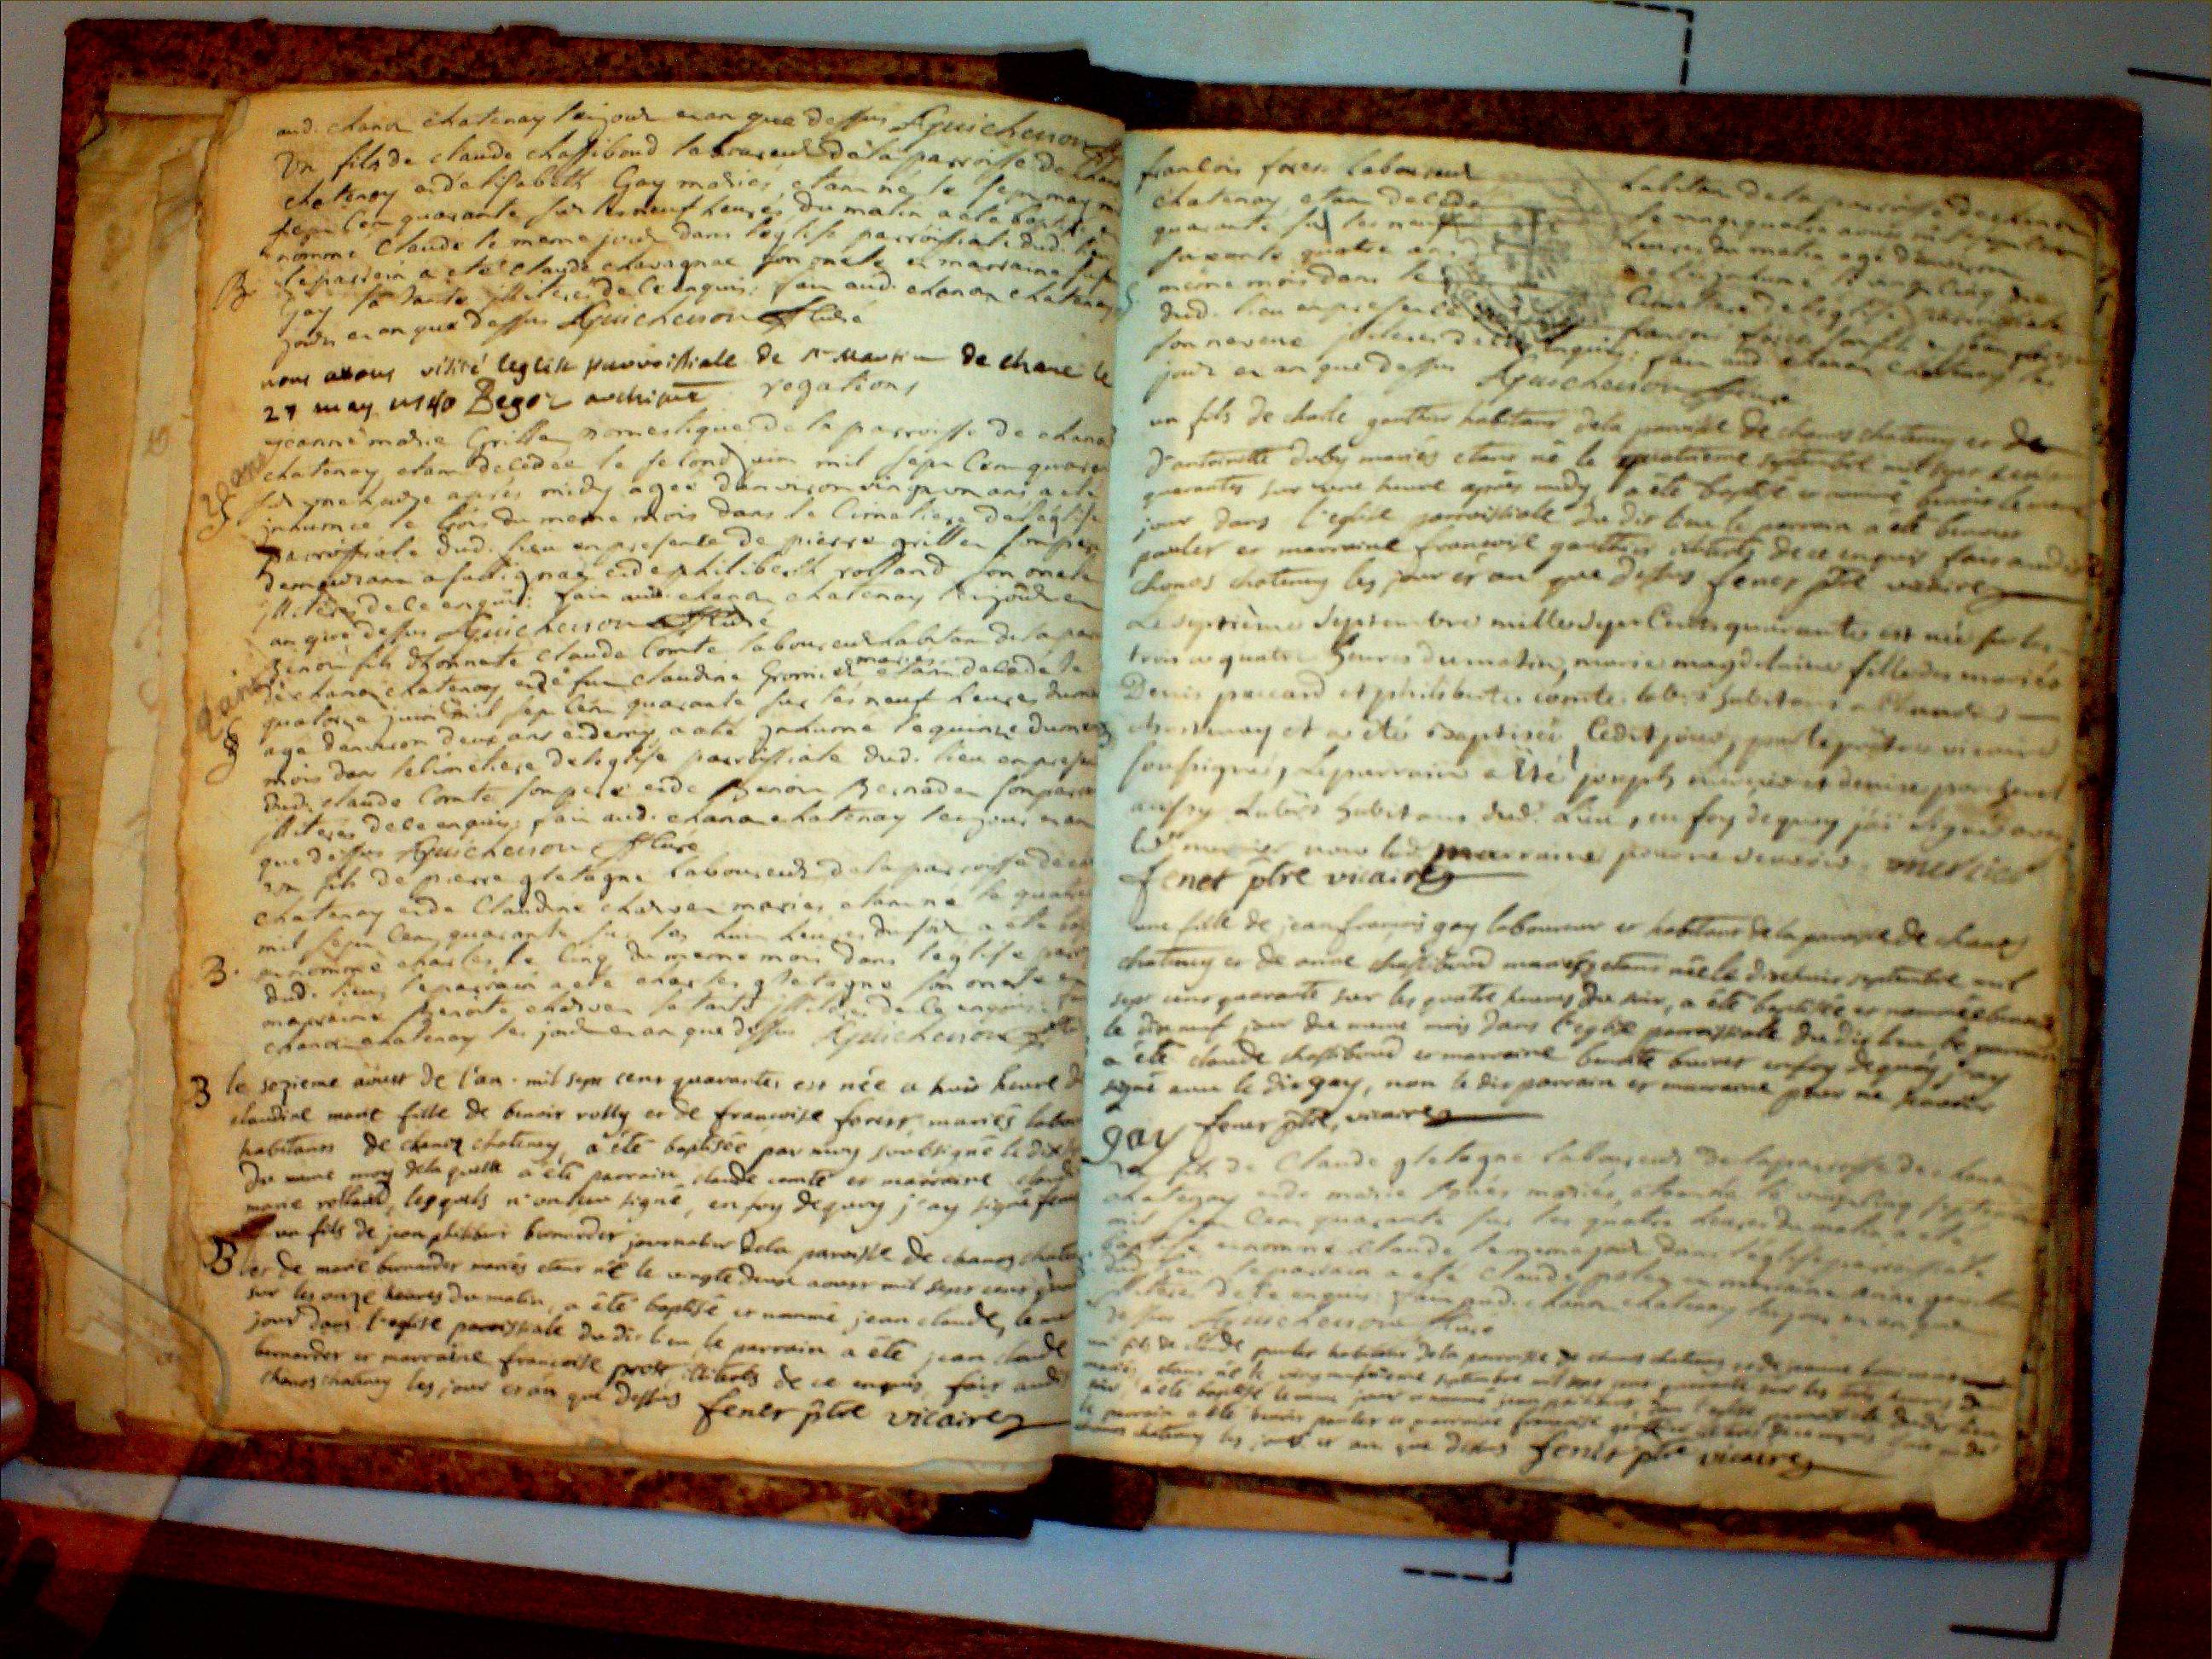 aud. chanoz chatenay lesjour et an que dessus AGuichenon
Un fils de claude chassiboud laboureur de la parroisse de chano
chatenay et d'elisabeth Gay mariés etant né le sept may m
sept cent quarante sur les neuf heures du matin a eté baptisé
nommé Claude le meme jour dans l'eglise parroissiale dud. lieu
B le parrein a eté claude chavagnac son oncle et marraine
Gay sa tante illiterés de ce enquis: fait aud. chanoz chatenay
jour et an que dessus AGuichenon Curé
nous avons visité leglise parroissiale de st Martin de chane le
27 may 1740 Begoz archipre rogations
jeanne marie Grillet domestique de la parroisse de chano
chatenay etant decedée le second juin mil sept cent quaran
sur une heure aprés midy agée d'environ vingt un ans a eté
inhumée le trois du meme mois dans le Cimetiere de l'eglise
parroissiale dud. lieu en presence de pierre grillet son pere
demeurant a et de philibert rolland son oncle
illiterés de ce enquis: fait aud. chanoz chatenay les jour et
an que dessus AGuichenon Curé
Benoit fils d'honnete claude Comte laboureur habitant de la par
de chanoz chatenay et de fut claudine Gromier mariés etant decedé le
quatorze juin mil sept cent quarante sur les neuf heures du ma
§ agé d'environ deux ans et demy a eté inhumé le quinze du mem
mois dans le cimetiere de l'eglise parroissiale dud. lieu en presen
dud. claude Comte son pere et de Benoit Bernadet son parr
illiterés de ce enquis: fait aud. chanoz chatenay les jour et an
que dessus AGuichenon Curé
un fils de pierre gletagne laboureur de la parroisse de ch
chatenay et de Claudine charvet mariés etant né le quatre
mil sept cent quarante sur les huit heures du soir a eté bap
B. et nommé charles le cinq du meme mois dans l'eglise parr
dud. lieu, le parrain a eté charles gletagne son oncle et
marraine Benoite charvet sa tante illiterés de ce enquis: fait
chanoz chatenay les jour et an que dessus AGuichenon
B le sezieme aoust de l'an mil sept cens quarantes est née a huit heure d
claudine marie fille de benoit rolly et de francoise forest mariés labou
habitants de chanoz chatenay, a été baptisée par nous soubsigné le dix
du meme moy de la quelle a été parrain claude comte et marraine claud
marie rolland, lesquels n'ont sceu signé, en foy de quoy j'ay signé fenet
B un fils de jean philibert bernardet journalier de la paroisse de chanoz chate
et de marie bernardet mariés etant né le vingte deux aoust mil sept cens quar
sur les onze heures du matin, a été baptisé et nommé jean claude, le me
jour dans l'eglise paroissiale du dit lieu, le parrain a été jean claude
bernardet et marraine francoise illiterés de ce enquis, fait audit
chanoz chatenay les jour et an que dessus fenet ptre vicaire
francois forest laboureur habitant de la parroisse de chanoz
chatenay etant decedé le sept cent
quarante sur les neuf heures du matin agé d'environ
soixante quatre ans a eté inhumé le vingt cinq du
méme mois dans le Cimetiere de l'eglise parroissiale
dud. lieu en presence francois forest son fils et jean
son neveux illiterés de ce enquis: fait aud. chanoz chatenay les
jour et an que dessus AGuichenon Curé
un fils de charle gauthier habitant dela paroisse de chanoz chatenay et de
d'antoinette duby mariés etant né le quatrieme septembre mil sept cens
quarantes sur une heure aprés midy, a été baptisé et nommé benoit le meme
jour dans l'eglise parroissiale du dit lieu le parrain a été benoit
paulet et marraine francoise gauthier illiterés de ce enquis fait audit
chanos chatenay les jour et an que dessus fenet ptre vicaire
Le septième septembre mille sept Cents quarante est née sur les
trois a quatre heures du matin, marie magdelaine fille des mariés
Denis paccard et philiberte comte lab.rs habitans a Chanos
chastenay et a été baptisée ledit jour, par le prêtre vicaire
soussigné, Le parrain a été joseph mercier et denise
aussy Lab.rs habitans dud. Lieu, en foy de quoy j'ai signé avec
led. mercier non lad. marraine pour ne sçavoir. mercier
fenet ptre vicaire
une fille de jean françois gay laboureur et habitant de la paroisse de chanos
chatenay et de anne chassiboud mariés, etant née le dixehuit septembre mil
sept cens quarante sur les quatre heures du soir, a été baptisée et nommée benoite
le dix neuf jour du meme mois dans l'eglise parroissiale du dit lieu, le parrain
a été claude chassiboud et marraine benoite buiret en foy de quoy j'ay
signé avec le dit gay, non le dit parrain et marraine pour ne scavoir
gay fenet ptre, vicaire
Un fils de Claude gletagne laboureur de la parroisse de chanoz
chatenay et de marie mariés, etant né le vingt cinq septembre
mil sept cent quarante sur les quatre heures du matin a eté
baptisé et nommé Claude le meme jour dans l'eglise parroissiale
dud. lieu le parrain a eté Claude et marraine anne
illiterés de ce enquis: fait aud. chanoz chatenay les jour et an que
dessus AGuichenon Curé
un fils de claude paulet habitant de la parroisse de chanos chatenay et de jeanne
mariés, etant né le vingt septembre mil sept cens quarante sur les trois heures du
soir, a été baptisé le meme jour et nommé jean dans l'eglise parroissiale du dit lieu
le parrain a été benoit paulet et marraine francoise illiterés de ce enquis fait audit
chanos chatenay les jour et an que dessus fenet ptre vicaire